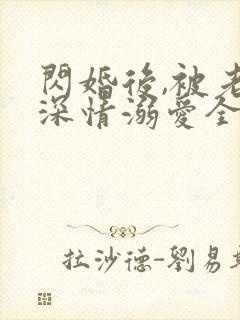 閃婚後,被老
深情溺愛全
拉沙德-劉易斯